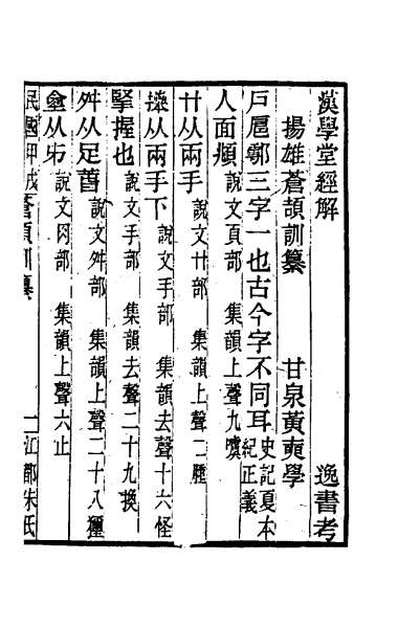 漢學堂經解 逸書考
揚雄蒼頡訓纂 甘泉黃奭學
戶扈鄠三字一也古今字不同耳 史記夏本紀正義
人面頮 說文頁部 集韻上聲九麌
廾从兩手 說文廾部 集韻上聲二腫
𢷎从兩手下 說文手部 集韻去聲十六怪
掔握也 說文手部 集韻去聲二十九換
舛从足𦫿 說文舛部 集韻上聲二十八獮
𠕋从𠂔 說文肉部 集韻上聲六止
民國甲戌 蒼頡訓纂 一 江都朱氏